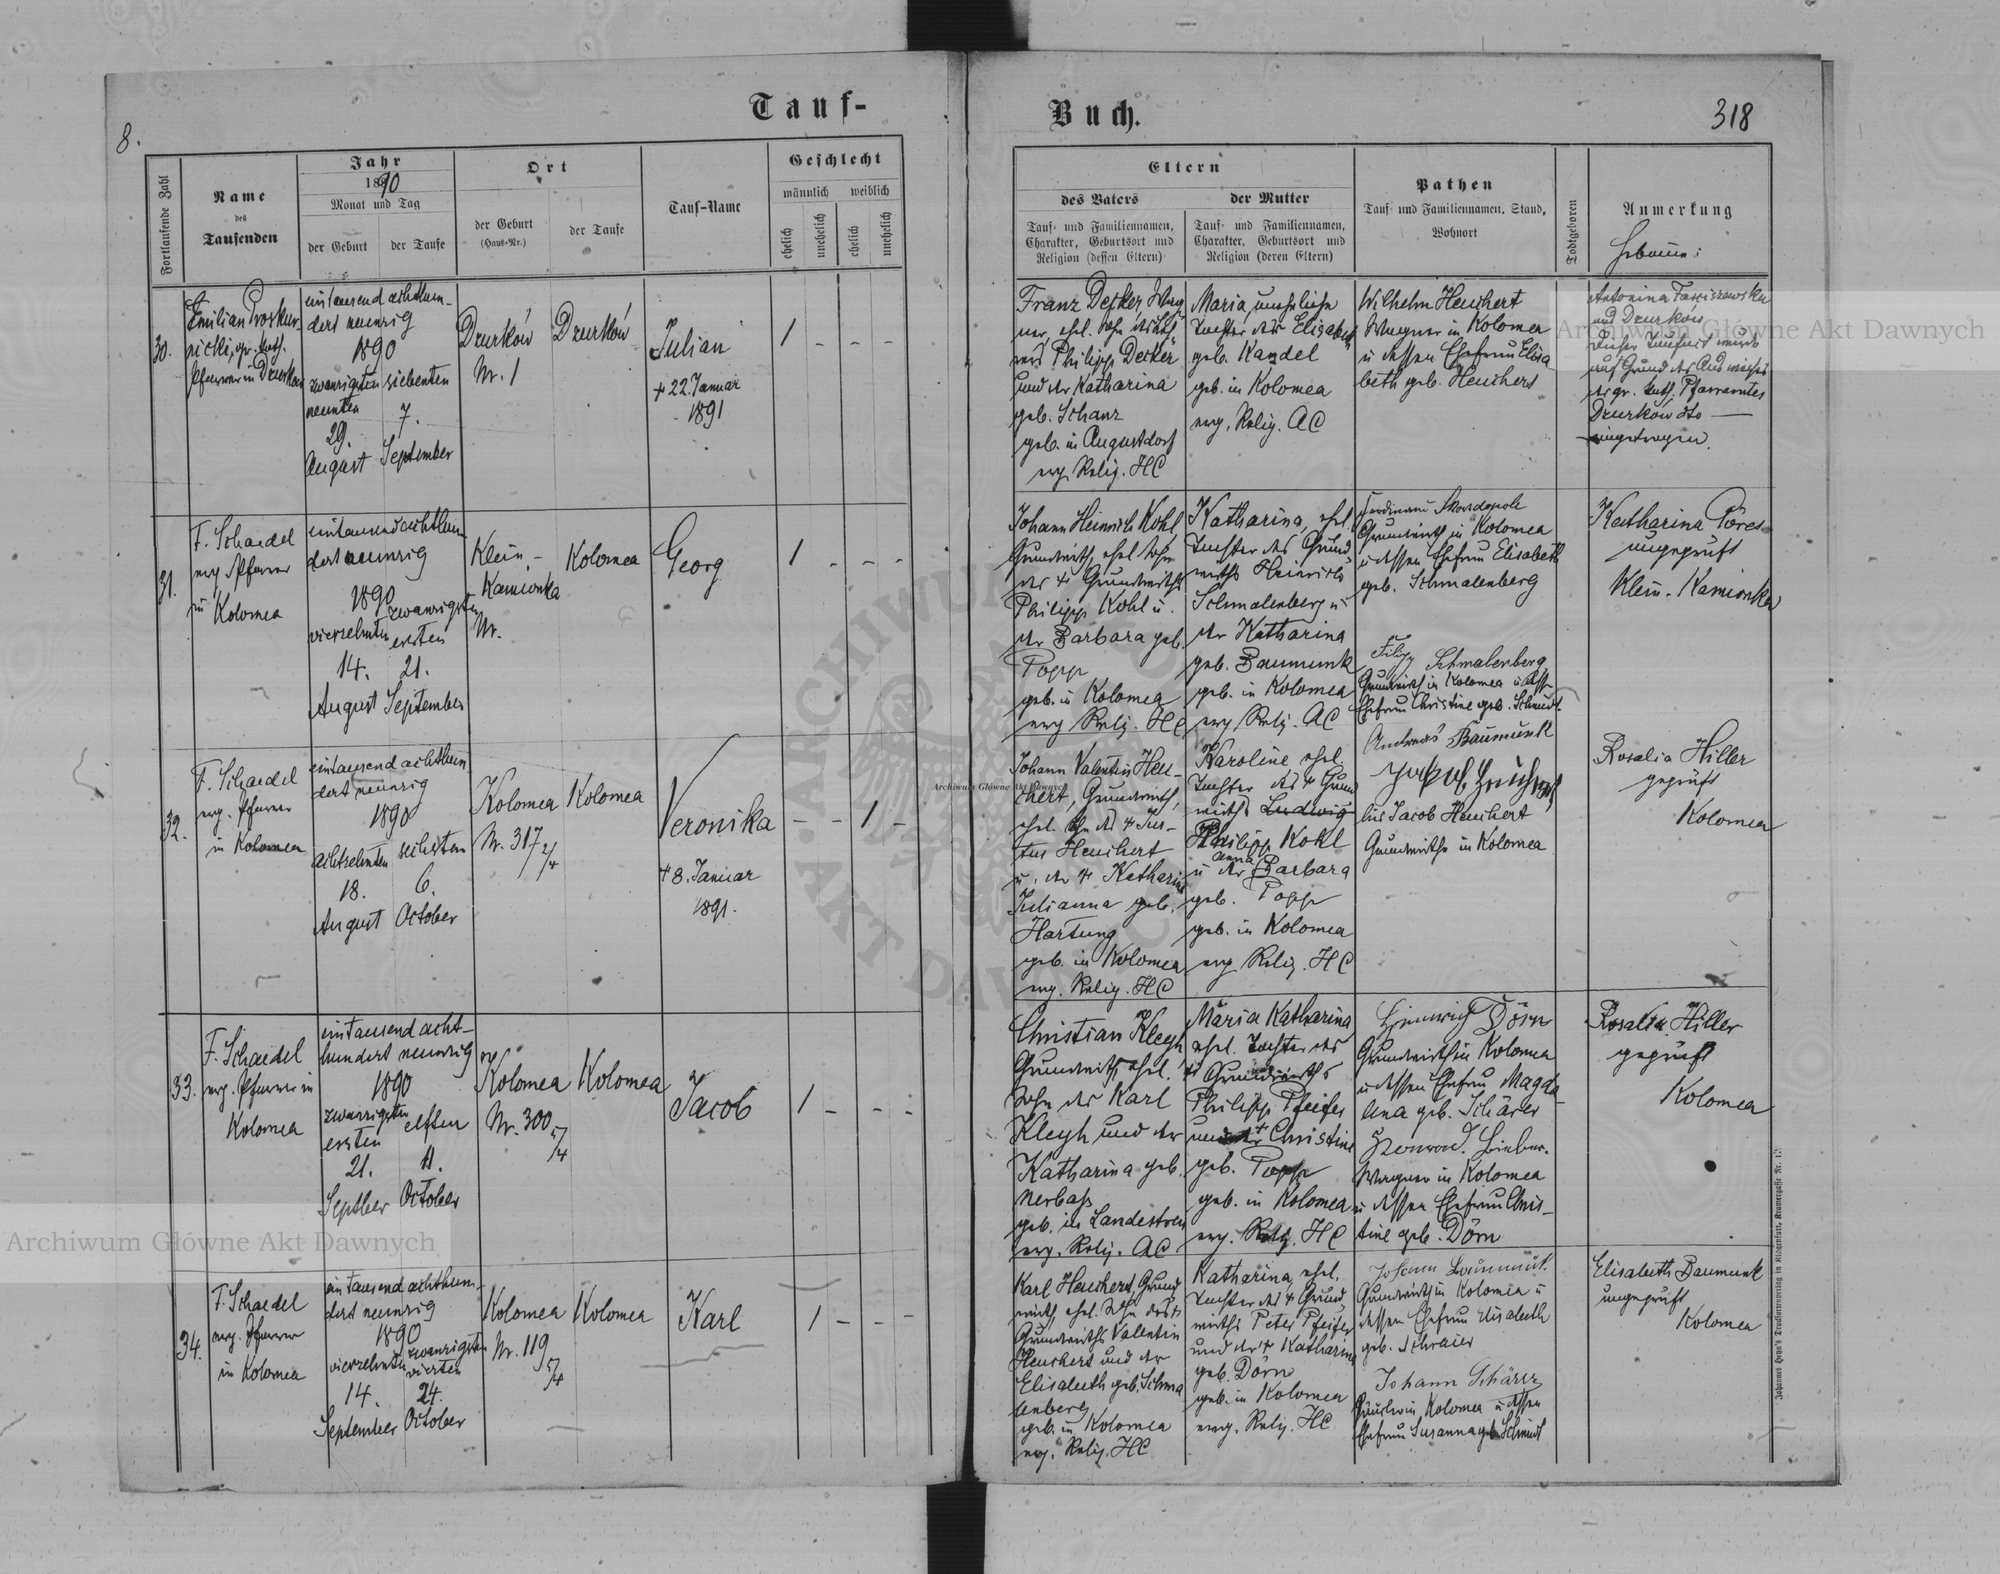 Tauf-
8.
Fortlaufende Zahl
Name
des
Taufenden
Jahr
1890
Monat und Tag
der Geburt
der Taufe
Ort
der Geburt
(Haus-Nr.)
der Taufe
Tauf-Name
Geschlecht
männlich
weiblich
ehelich
unehelich
ehelich
unehelich
30.
Emilian Proskur-
nicki, gr. kath.
Pfarrer in Dzurków
eintausend achthun-
dert neunzig
1890
zwanzigsten
neunten
29.
August
siebenten
7.
September
Dzurków
Nr. 1
Dzurków
Julian
+ 22. Januar
1891
1 - - -
31.
F. Schaedel
evg. Pfarrer
in Kolomea
eintausend achthun-
dert neunzig
1890
vierzehnten
14.
August
zwanzigsten
ersten
21.
September
Klein-
Kamionka
Nr.
Kolomea
Georg
1 - - -
32.
F. Schaedel
evg. Pfarrer
in Kolomea
eintausend achthun-
dert neunzig
1890
achtzehnten
18.
August
sechsten
6.
October
Kolomea
Nr. 317 2/4
Kolomea
Veronika
+ 8. Januar
1891.
- - 1 -
33.
F. Schaedel
evg. Pfarrer in
Kolomea
eintausend acht-
hundert neunzig
1890
zwanzigsten
ersten
21.
Septber
elften
11.
October
Kolomea
Nr. 300 5/4
Kolomea
Jacob
1 - - -
34.
F. Schaedel
evg. Pfarrer
in Kolomea
eintausend achthun-
dert neunzig
1890
vierzehnten
14.
September
zwanzigsten
vierten
24.
October
Kolomea
Nr. 119 5/4
Kolomea
Karl
1 - - -
Buch.
318
Eltern
des Vaters
Tauf- und Familiennamen,
Charakter, Geburtsort und
Religion (dessen Eltern)
der Mutter
Tauf- und Familiennamen,
Charakter, Geburtsort und
Religion (deren Eltern)
Pathen
Tauf- und Familiennamen, Stand,
Wohnort
Todtgeboren
Anmerkung
Hebamme:
Franz Decker, Wag
ner, ehel. Sohn des
Philipp Decker
und der Katharina
geb. Schanz
geb. in Augustdorf
evg. Relig. HC
Maria, uneheliche
Tochter der Elisabeth
geb. Kandel
geb. in Kolomea
evg. Relig. AC
Wilhelm Heuchert
Wagner in Kolomea
u dessen Ehefrau Elisa
beth geb. Heuchert
Antonina
aus Dzurków
Dieser Taufact wurde
auf Grund des Ausweises
des gr. kath. Pfarramtes
Dzurków dto —
eingetragen.
Johann Heinrich Kohl
Grundwirth, ehel Sohn
des + Grundwirths
Philipp Kohl u.
der Barbara geb.
Popp
geb. in Kolomea
evg Relig. HC
Katharina, ehel.
Tochter des Grund
wirths Heinrich
Schmalenberg u
der Katharina
geb. Baumunk
geb. in Kolomea
evg Relig. AC
Ferdinand
Grundwirth in Kolomea
u dessen Ehefrau Elisabeth
geb. Schmalenberg
Filipp Schmalenberg
Grundwirth in Kolomea u dess.
Ehefrau Christine geb. Schmidt
Katharina
ungeprüft
Klein-Kamionka
Johann Valentin Heu-
chert, Grundwirth,
ehel. Sohn des + Jus-
tus Heuchert
u. der + Katharina
Julianna geb.
Hartung
geb. in Kolomea
evg. Relig. HC
Karoline ehel.
Tochter des + Grund
wirths Ludwig
Philipp Kohl
u der Anna Barbara
geb. Popp
geb. in Kolomea
evg Relig. HC
Andreas Baumunk
für Jacob Heuchert
Grundwirthe in Kolomea
Rosalia Hiller
geprüft
Kolomea
Christian Klegh
Grundwirth, ehel.
Sohn des Karl
Klegh und der
Katharina geb.
Nerbass
geb. in Landestreu
evg. Relig. AC
Maria Katharina
ehel. Tochter des
+ Grundwirths
Philipp Pfeifer
und der + Christine
geb. Popp
geb. in Kolomea
evg. Relig. HC
Heinrich Dörn
Grundwirth in Kolomea
u dessen Ehefrau Magda
lena geb. Schärer
Wagner in Kolomea
u dessen Ehefrau Chris-
tine geb. Dörn
Rosalia Hiller
geprüft
Kolomea
Karl Heuchert, Grund
wirth, ehel. Sohn des +
Grundwirths Valentin
Heuchert und der
Elisabeth geb. Schma
lenberg
geb. in Kolomea
evg. Relig. HC
Katharina, ehel.
Tochter des + Grund
wirths Peter Pfeifer
und der + Katharina
geb. Dörn
geb. in Kolomea
evg. Relig. HC
Johann Baumunk
Grundwirth in Kolomea u
dessen Ehefrau Elisabeth
geb. Schraier
Johann Schärer
in Kolomea u dessen
Ehefrau Susanna geb. Schmidt
Elisabeth Baumunk
ungeprüft
Kolomea
Archiwum Główne Akt Dawnych
Archiwum Główne Akt Dawnych
Archiwum Główne Akt Dawnych